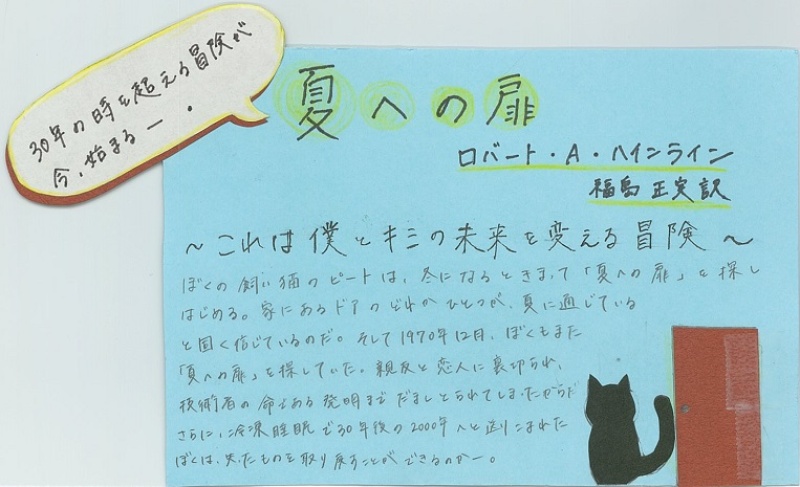 30年の時を超える冒険が
今、始まるー・
夏への扉
ロバート・A・ハインライン
福島 正実 訳
～これは僕とキミの未来を変える冒険～
ぼくの飼い猫のピートは、冬になるときまって「夏への扉」を探し
はじめる。家にあるドアのどれかひとつが、夏に通じている
と固く信じているのだ。そして1970年12月、ぼくもまた
「夏への扉」を探していた。親友と恋人に裏切られ、
技術者の命である発明までだましとられてしまったからだ
さらに、冷凍睡眠で30年後の2000年へと送りこまれた
ぼくは、失ったものを取り戻すことができるのかー。